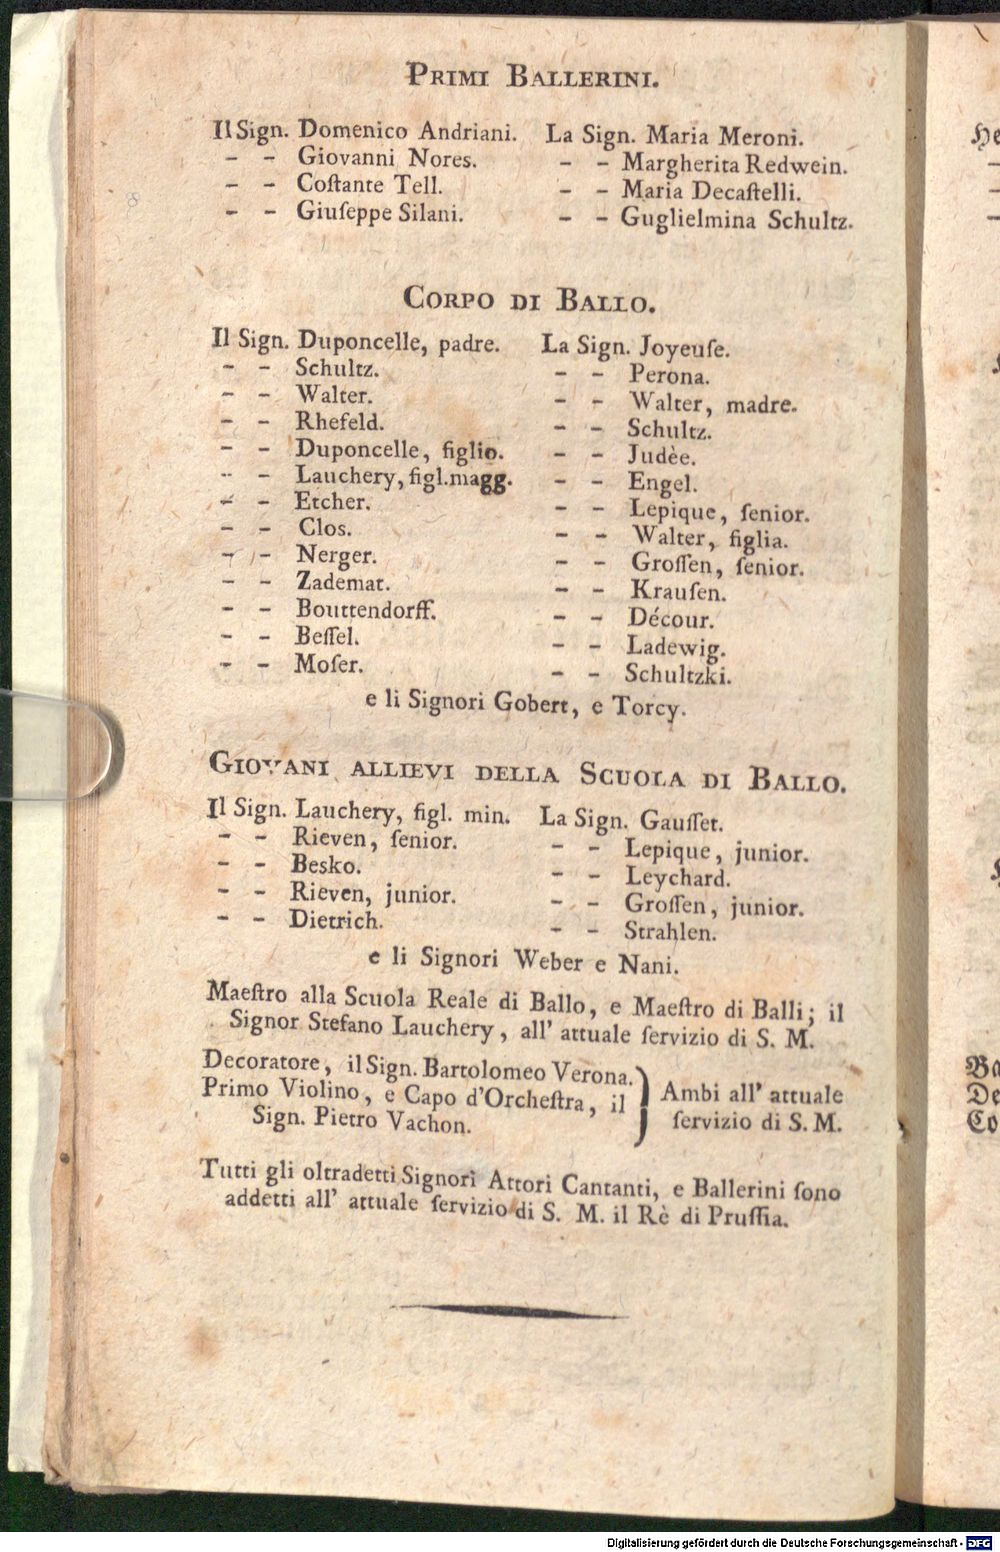 PRIMI BALLERINI.
Il Sign. Domenico Andriani. La Sign. Maria Meroni.
- - Giovanni Nores. - - Margherita Redwein.
- - Coſtante Tell. - - Maria Decaſtelli.
- - Giuſeppe Silani. - - Guglielmina Schultz.
CORPO DI BALLO.
Il Sign. Duponcelle, padre. La Sign. Joyeuſe.
- - Schultz. - - Perona.
- - Walter. - - Walter, madre.
- - Rhefeld. - - Schultz.
- - Duponcelle, figlio. - - Judèe.
- - Lauchery, figl. magg. - - Engel.
- - Etcher. - - Lepique, ſenior.
- - Clos. - - Walter, figlia.
- - Nerger. - - Groſſen, ſenior.
- - Zademat. - - Krauſen.
- - Bouttendorff. - - Décour.
- - Beſſel. - - Ladewig.
- - Moſer. - - Schultzki.
e li Signori Gobert, e Torcy.
GIOVANI ALLIEVI DELLA SCUOLA DI BALLO.
Il Sign. Lauchery, figl. min. La Sign. Gauſſet.
- - Rieven, ſenior. - - Lepique, junior.
- - Besko. - - Leychard.
- - Rieven, junior. - - Groſſen, junior.
- - Dietrich. - - Strahlen.
e li Signori Weber e Nani.
Maeſtro alla Scuola Reale di Ballo, e Maeſtro di Balli; il
Signor Stefano Lauchery, all' attuale ſervizio di S. M.
Decoratore, il Sign. Bartolomeo Verona.
Primo Violino, e Capo d'Orcheſtra, il
Sign. Pietro Vachon.
} Ambi all' attuale
ſervizio di S. M.
Tutti gli oltradetti Signori Attori Cantanti, e Ballerini ſono
addetti all' attuale ſervizio di S. M. il Rè di Pruſſia.
Digitalisierung gefördert durch die Deutsche Forschungsgemeinschaft - DFG